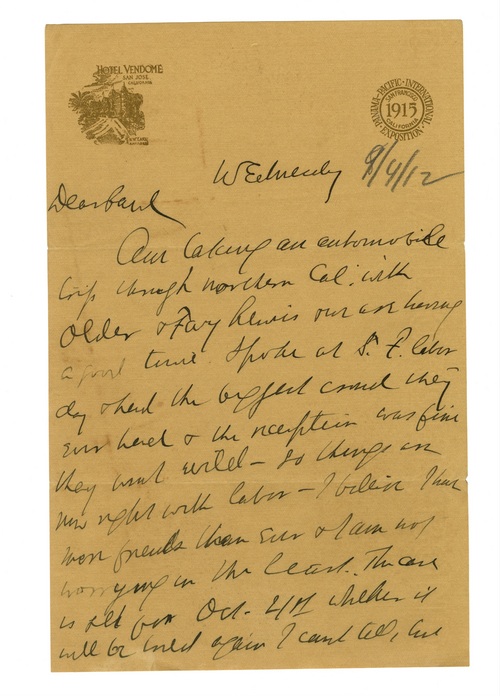 HOTEL VENDOME
SAN JOSE
CALIFORNIA
PANAMA-PACIFIC-INTERNATIONAL EXPOSITION
SAN FRANCISCO
1915
CALIFORNIA
Wednesday 9/4/12
Dear Paul
Am taking an automobile
trip through northern Cal. with
Older & Fay Lewis our are having
a good time. Spoke at S. F. labor
day & had the biggest crowd they
ever had & the reception was fine
they went wild – So things are
now right with labor – I believe I have
more friends than ever & I am not
worrying in the least. The case
is set for Oct. 21st whether it
will be tried again I cant tell, but